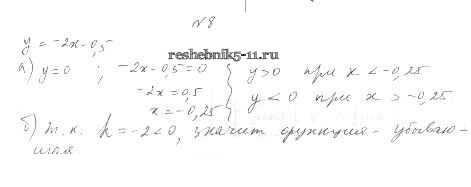 №8
y = -2x-0,5
reshebnik5-11.ru
а) y=0 ; -2x-0,5=0 } y>0 при x < -0,25
-2x=0,5
x=-0,25 } y < 0 при x > -0,25
б) т.к. k = -2<0, значит функция - убываю-
щая